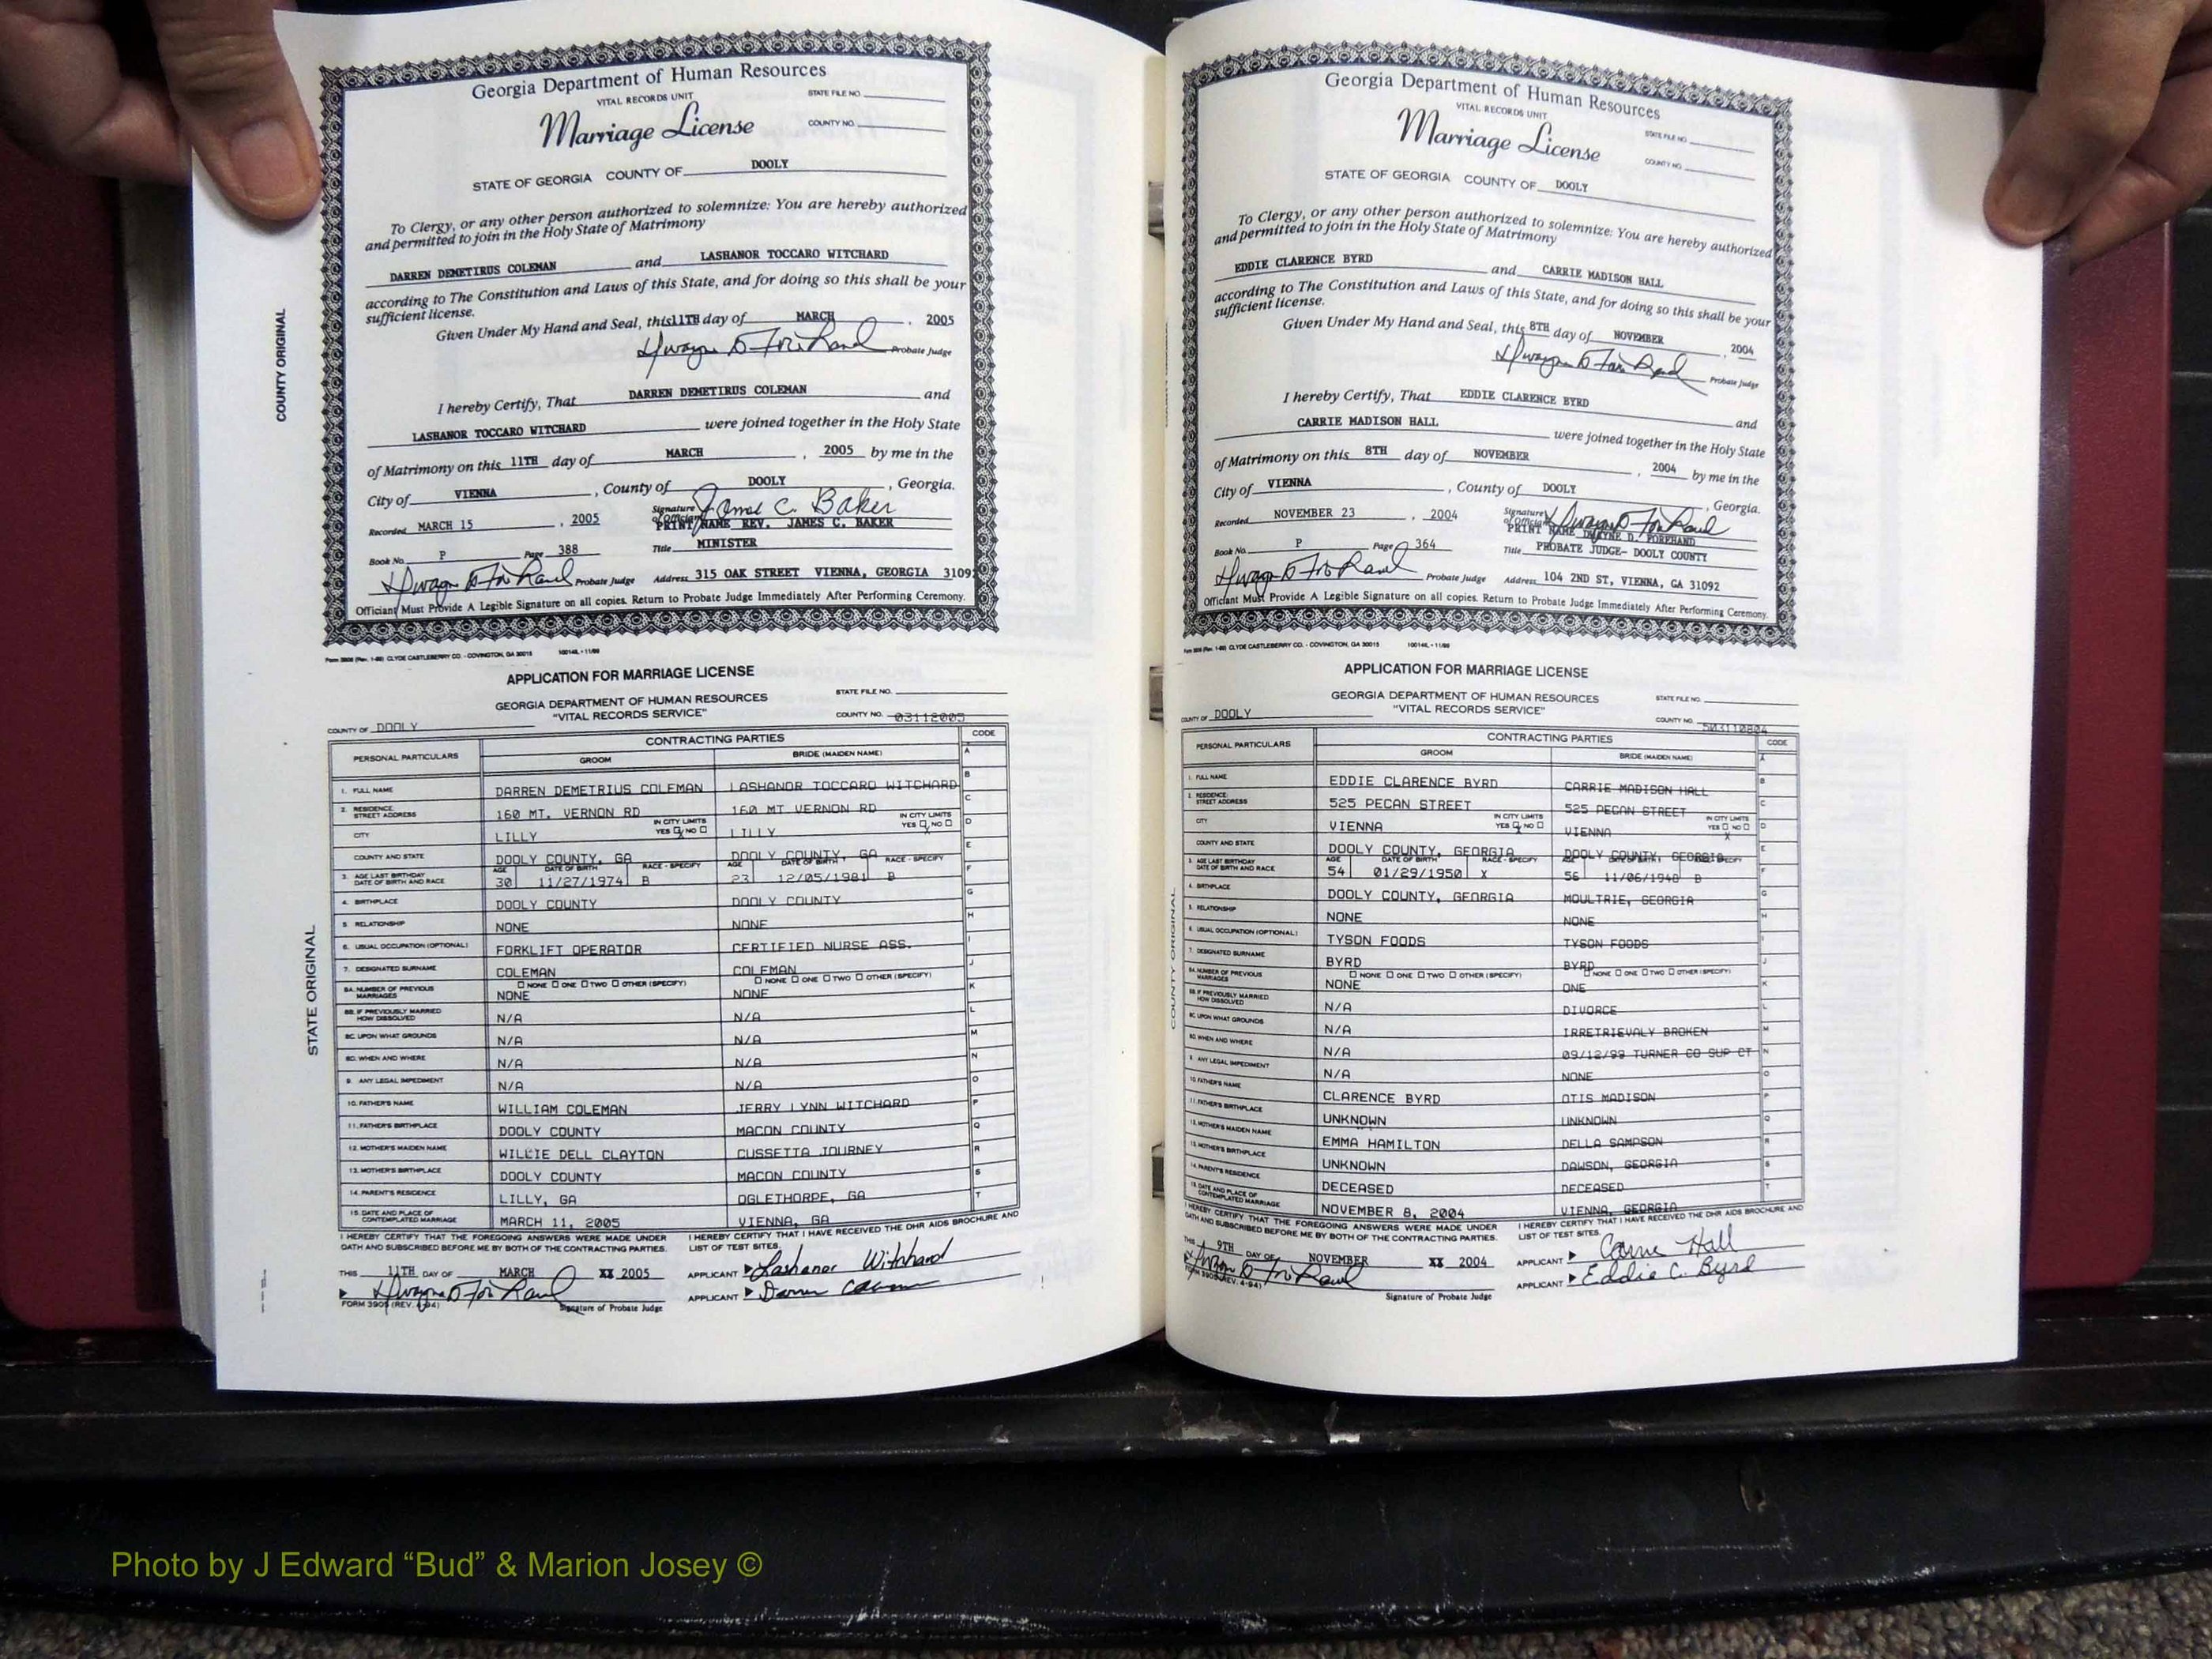 Georgia Department of Human Resources
VITAL RECORDS UNIT
STATE FILE NO.
Marriage License
COUNTY NO.
STATE OF GEORGIA COUNTY OF DOOLY
To Clergy, or any other person authorized to solemnize: You are hereby authorized
and permitted to join in the Holy State of Matrimony
DARREN DEMETIRUS COLEMAN and LASHANOR TOCCARO WITCHARD
according to The Constitution and Laws of this State, and for doing so this shall be your
sufficient license.
Given Under My Hand and Seal, this 11TH day of MARCH, 2005
Probate Judge
I hereby Certify, That DARREN DEMETIRUS COLEMAN and
LASHANOR TOCCARO WITCHARD were joined together in the Holy State
of Matrimony on this 11TH day of MARCH, 2005 by me in the
City of VIENNA, County of DOOLY, Georgia.
Signature of Official James C. Baker
Recorded MARCH 15, 2005 PRINT NAME REV. JAMES C. BAKER
Book No. P Page 388 Title MINISTER
Probate Judge Address 315 OAK STREET VIENNA, GEORGIA 3109
Officiant Must Provide A Legible Signature on all copies. Return to Probate Judge Immediately After Performing Ceremony.
COUNTY ORIGINAL
CLYDE CASTLEBERRY CO. - COVINGTON, GA 30015
APPLICATION FOR MARRIAGE LICENSE
GEORGIA DEPARTMENT OF HUMAN RESOURCES
"VITAL RECORDS SERVICE"
STATE FILE NO.
COUNTY OF DOOLY COUNTY NO. 03112005
PERSONAL PARTICULARS CONTRACTING PARTIES CODE
GROOM BRIDE (MAIDEN NAME) A
1. FULL NAME DARREN DEMETRIUS COLEMAN LASHANOR TOCCARO WITCHARD B
2. RESIDENCE: STREET ADDRESS 160 MT. VERNON RD 160 MT VERNON RD C
CITY LILLY IN CITY LIMITS YES NO LILLY IN CITY LIMITS YES NO D
COUNTY AND STATE DOOLY COUNTY, GA DOOLY COUNTY, GA E
3. AGE LAST BIRTHDAY DATE OF BIRTH AND RACE AGE 30 DATE OF BIRTH 11/27/1974 RACE - SPECIFY B AGE 23 DATE OF BIRTH 12/05/1981 RACE - SPECIFY B F
4. BIRTHPLACE DOOLY COUNTY DOOLY COUNTY G
5. RELATIONSHIP NONE NONE H
6. USUAL OCCUPATION (OPTIONAL) FORKLIFT OPERATOR CERTIFIED NURSE ASS. I
7. DESIGNATED SURNAME COLEMAN COLEMAN J
8A. NUMBER OF PREVIOUS MARRIAGES NONE ONE TWO OTHER (SPECIFY) NONE NONE ONE TWO OTHER (SPECIFY) NONE K
8B. IF PREVIOUSLY MARRIED HOW DISSOLVED N/A N/A L
8C. UPON WHAT GROUNDS N/A N/A M
8D. WHEN AND WHERE N/A N/A N
9. ANY LEGAL IMPEDIMENT N/A N/A O
10. FATHER'S NAME WILLIAM COLEMAN JERRY LYNN WITCHARD P
11. FATHER'S BIRTHPLACE DOOLY COUNTY MACON COUNTY Q
12. MOTHER'S MAIDEN NAME WILLIE DELL CLAYTON CUSSETTA JOURNEY R
13. MOTHER'S BIRTHPLACE DOOLY COUNTY MACON COUNTY S
14. PARENT'S RESIDENCE LILLY, GA OGLETHORPE, GA T
15. DATE AND PLACE OF CONTEMPLATED MARRIAGE MARCH 11, 2005 VIENNA, GA
I HEREBY CERTIFY THAT THE FOREGOING ANSWERS WERE MADE UNDER
OATH AND SUBSCRIBED BEFORE ME BY BOTH OF THE CONTRACTING PARTIES.
I HEREBY CERTIFY THAT I HAVE RECEIVED THE DHR AIDS BROCHURE AND
LIST OF TEST SITES.
THIS 11TH DAY OF MARCH XX 2005 APPLICANT Lashanor Witchard
APPLICANT
FORM 3905 (REV. 4-94) Signature of Probate Judge
STATE ORIGINAL
Georgia Department of Human Resources
VITAL RECORDS UNIT
STATE FILE NO.
Marriage License
COUNTY NO.
STATE OF GEORGIA COUNTY OF DOOLY
To Clergy, or any other person authorized to solemnize: You are hereby authorized
and permitted to join in the Holy State of Matrimony
EDDIE CLARENCE BYRD and CARRIE MADISON HALL
according to The Constitution and Laws of this State, and for doing so this shall be your
sufficient license.
Given Under My Hand and Seal, this 8TH day of NOVEMBER, 2004
Probate Judge
I hereby Certify, That EDDIE CLARENCE BYRD and
CARRIE MADISON HALL were joined together in the Holy State
of Matrimony on this 8TH day of NOVEMBER, 2004 by me in the
City of VIENNA, County of DOOLY, Georgia.
Signature of Official
Recorded NOVEMBER 23, 2004 PRINT NAME DWAYNE D. FOREHAND
Book No. P Page 364 Title PROBATE JUDGE- DOOLY COUNTY
Probate Judge Address 104 2ND ST, VIENNA, GA 31092
Officiant Must Provide A Legible Signature on all copies. Return to Probate Judge Immediately After Performing Ceremony.
CLYDE CASTLEBERRY CO. - COVINGTON, GA 30015
APPLICATION FOR MARRIAGE LICENSE
GEORGIA DEPARTMENT OF HUMAN RESOURCES
"VITAL RECORDS SERVICE"
STATE FILE NO.
COUNTY OF DOOLY COUNTY NO.
PERSONAL PARTICULARS CONTRACTING PARTIES CODE
GROOM BRIDE (MAIDEN NAME) A
1. FULL NAME EDDIE CLARENCE BYRD CARRIE MADISON HALL B
2. RESIDENCE: STREET ADDRESS 525 PECAN STREET 525 PECAN STREET C
CITY VIENNA IN CITY LIMITS YES NO VIENNA IN CITY LIMITS YES NO X D
COUNTY AND STATE DOOLY COUNTY, GEORGIA DOOLY COUNTY, GEORGIA E
3. AGE LAST BIRTHDAY DATE OF BIRTH AND RACE AGE 54 DATE OF BIRTH 01/29/1950 RACE - SPECIFY X 56 11/06/1948 B F
4. BIRTHPLACE DOOLY COUNTY, GEORGIA MOULTRIE, GEORGIA G
5. RELATIONSHIP NONE NONE H
6. USUAL OCCUPATION (OPTIONAL) TYSON FOODS TYSON FOODS I
7. DESIGNATED SURNAME BYRD BYRD J
8A. NUMBER OF PREVIOUS MARRIAGES NONE ONE TWO OTHER (SPECIFY) NONE NONE ONE TWO OTHER (SPECIFY) ONE K
8B. IF PREVIOUSLY MARRIED HOW DISSOLVED N/A DIVORCE L
8C. UPON WHAT GROUNDS N/A IRRETRIEVALY BROKEN M
8D. WHEN AND WHERE N/A 09/12/99 TURNER CO SUP CT N
9. ANY LEGAL IMPEDIMENT N/A NONE O
10. FATHER'S NAME CLARENCE BYRD OTIS MADISON P
11. FATHER'S BIRTHPLACE UNKNOWN UNKNOWN Q
12. MOTHER'S MAIDEN NAME EMMA HAMILTON DELLA SAMPSON R
13. MOTHER'S BIRTHPLACE UNKNOWN DAWSON, GEORGIA S
14. PARENT'S RESIDENCE DECEASED DECEASED T
15. DATE AND PLACE OF CONTEMPLATED MARRIAGE NOVEMBER 8, 2004 VIENNA, GEORGIA
I HEREBY CERTIFY THAT THE FOREGOING ANSWERS WERE MADE UNDER
OATH AND SUBSCRIBED BEFORE ME BY BOTH OF THE CONTRACTING PARTIES.
I HEREBY CERTIFY THAT I HAVE RECEIVED THE DHR AIDS BROCHURE AND
LIST OF TEST SITES.
THIS 9TH DAY OF NOVEMBER XX 2004 APPLICANT Carrie Hall
APPLICANT Eddie C. Byrd
FORM 3905 (REV. 4-94) Signature of Probate Judge
COUNTY ORIGINAL
Photo by J Edward “Bud” & Marion Josey ©